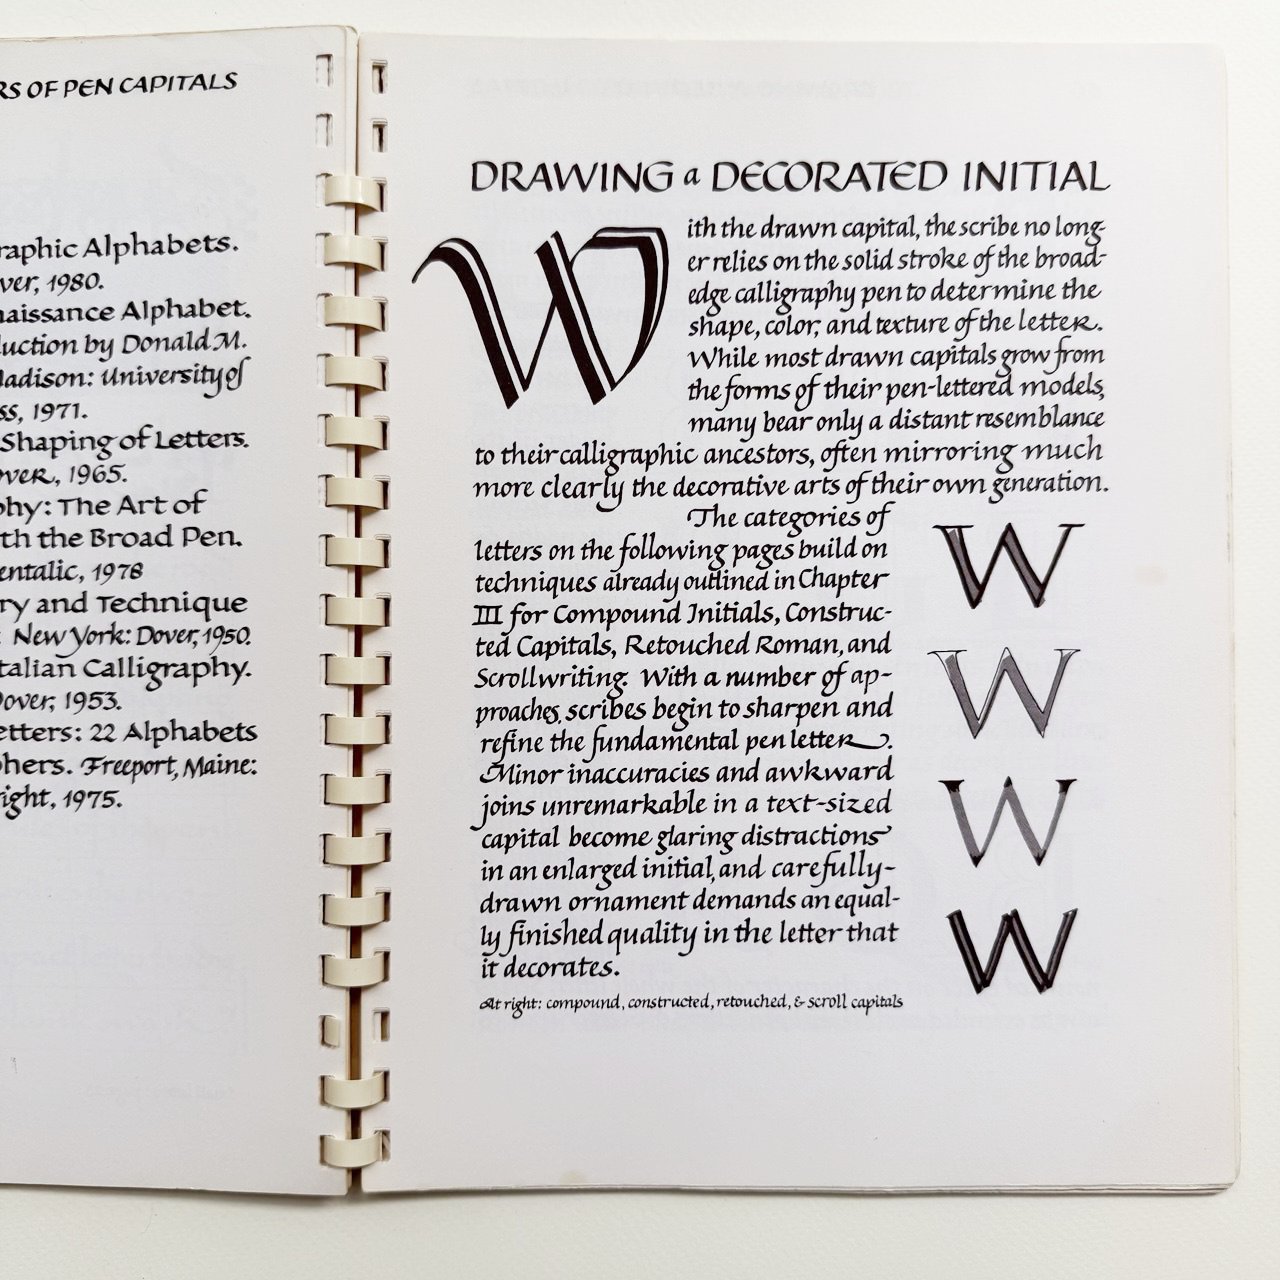 RS OF PEN CAPITALS
raphic Alphabets.
ver, 1980.
naissance Alphabet.
duction by Donald M.
Madison: University of
ss, 1971.
Shaping of Letters.
over, 1965.
phy: The Art of
th the Broad Pen.
entalic, 1978
ry and Technique
: New York: Dover, 1950.
talian Calligraphy.
Dover, 1953.
etters: 22 Alphabets
phers. Freeport, Maine:
right, 1975.
DRAWING a DECORATED INITIAL
W
ith the drawn capital, the scribe no long-
er relies on the solid stroke of the broad-
edge calligraphy pen to determine the
shape, color, and texture of the letter.
While most drawn capitals grow from
the forms of their pen-lettered models,
many bear only a distant resemblance
to their calligraphic ancestors, often mirroring much
more clearly the decorative arts of their own generation.
The categories of
letters on the following pages build on
techniques already outlined in Chapter
III for Compound Initials, Construc-
ted Capitals, Retouched Roman, and
Scrollwriting. With a number of ap-
proaches, scribes begin to sharpen and
refine the fundamental pen letter.
Minor inaccuracies and awkward
joins unremarkable in a text-sized
capital become glaring distractions
in an enlarged initial, and carefully-
drawn ornament demands an equal-
ly finished quality in the letter that
it decorates.
At right: compound, constructed, retouched, & scroll capitals
W
W
W
W